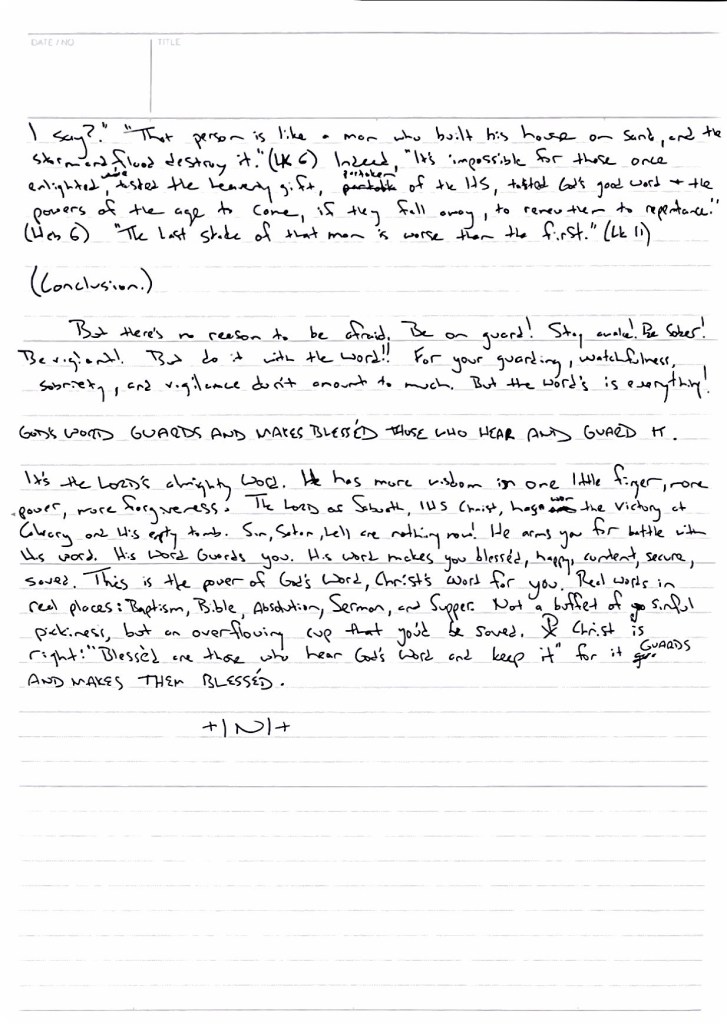 DATE / NO
TITLE
I say?" "That person is like a man who built his house on sand, and the
storm and flood destroy it." (Lk 6) Indeed, "It's impossible for those once
enlighted, who tasted the heavenly gift, partaken of the HS, tasted God's good word + the
powers of the age to come, if they fall away, to renew them to repentance."
(Heb 6) "The last state of that man is worse than the first." (Lk 11)
(Conclusion.)
But there's no reason to be afraid. Be on guard! Stay awake! Be sober!
Be vigilant! But do it with the Word!! For your guarding, watchfulness,
sobriety, and vigilance don't amount to much. But the Word's is everything!
GOD'S WORD GUARDS AND MAKES BLESSÉD THOSE WHO HEAR AND GUARD IT.
It's the LORD'S almighty Word. He has more wisdom in one little finger, more
power, more forgiveness. The LORD of Sabaoth, IHS Christ, has won the victory at
Calvary and His empty tomb. Sin, Satan, hell are nothing now! He arms you for battle with
His word. His Word Guards you. His word makes you blessed, happy, content, secure,
saved. This is the power of God's Word, Christ's Word for you. Real words in
real places: Baptism, Bible, Absolution, Sermon, and Supper. Not a buffet of sinful
pickiness, but an overflowing cup that you'd be saved. Christ is
right! "Blesséd are those who hear God's Word and keep it" for it GUARDS
AND MAKES THEM BLESSÉD.
+ I N I +